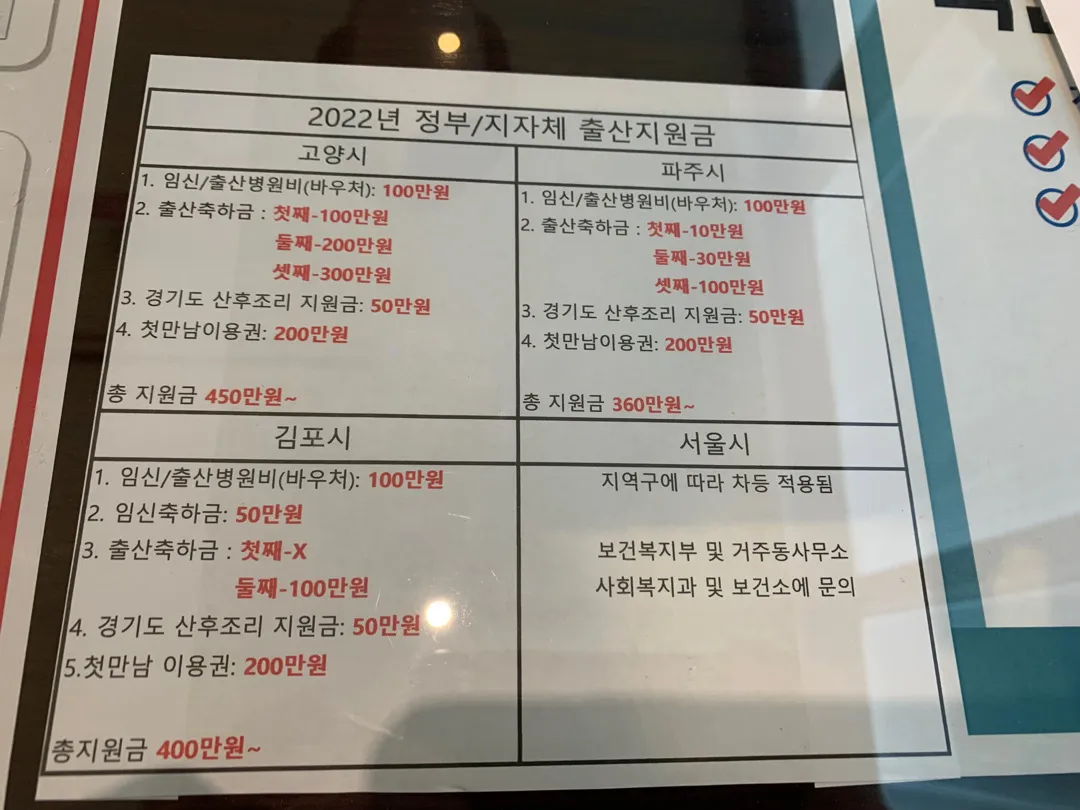 2022년 정부/지자체 출산지원금
고양시
1. 임신/출산병원비(바우처): 100만원
2. 출산축하금 : 첫째-100만원
둘째-200만원
셋째-300만원
3. 경기도 산후조리 지원금: 50만원
4. 첫만남이용권: 200만원
총 지원금 450만원~
파주시
1. 임신/출산병원비(바우처): 100만원
2. 출산축하금 : 첫째-10만원
둘째-30만원
셋째-100만원
3. 경기도 산후조리 지원금: 50만원
4. 첫만남이용권: 200만원
총 지원금 360만원~
김포시
1. 임신/출산병원비(바우처): 100만원
2. 임신축하금: 50만원
3. 출산축하금 : 첫째-X
둘째-100만원
4. 경기도 산후조리 지원금: 50만원
5.첫만남 이용권: 200만원
총지원금 400만원~
서울시
지역구에 따라 차등 적용됨
보건복지부 및 거주동사무소
사회복지과 및 보건소에 문의